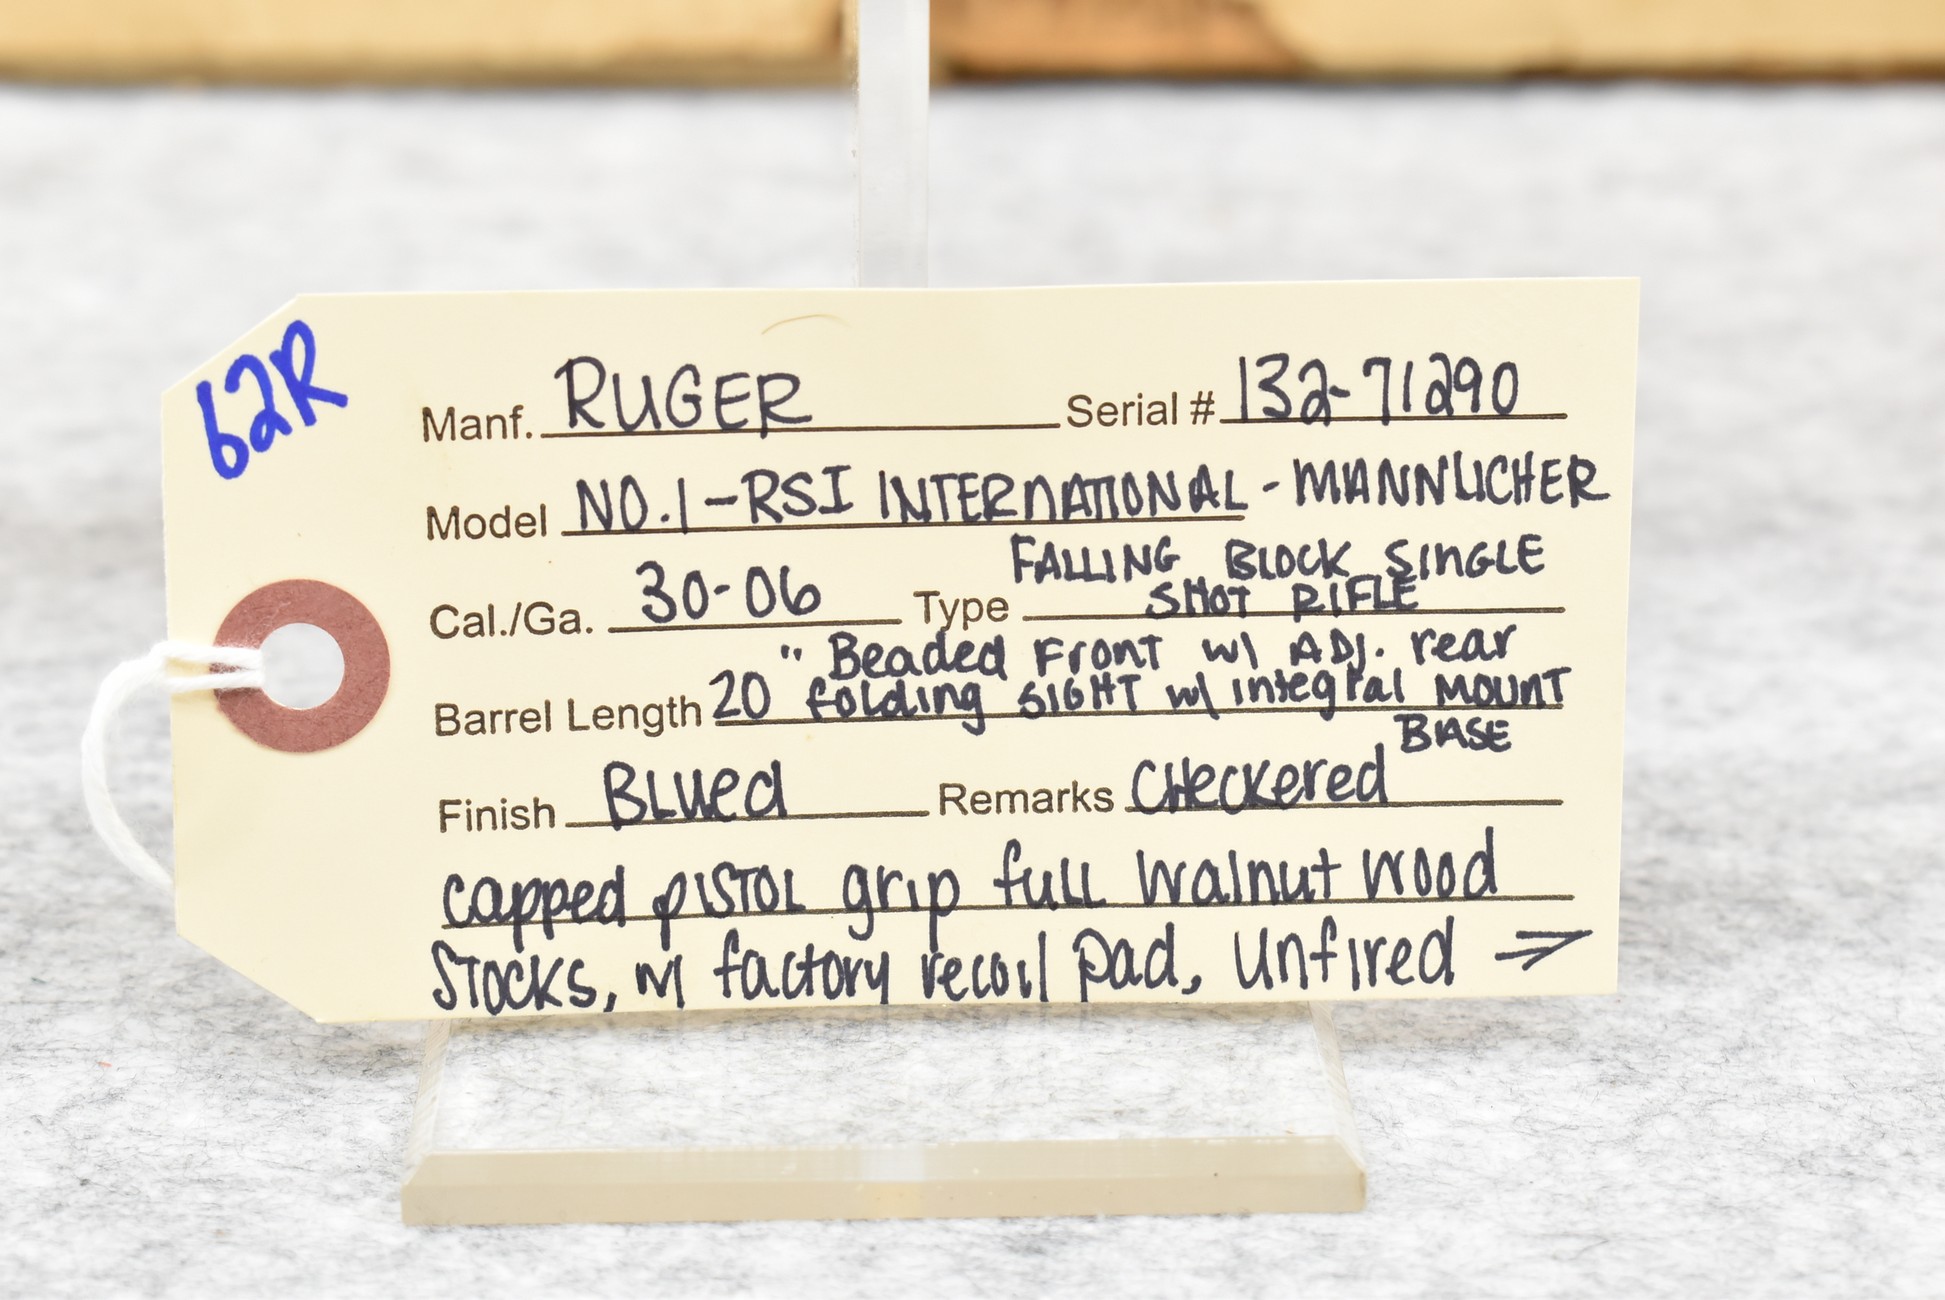 62R
Manf. RUGER Serial # 132-71290
Model NO.1-RSI INTERNATIONAL - MANNLICHER
Cal./Ga. 30-06 Type FALLING BLOCK SINGLE
SHOT RIFLE
Barrel Length 20" Beaded Front w/ ADJ. rear
folding SIGHT w/ integral MOUNT
BASE
Finish BLUed Remarks CHeckered
capped pISTOL grip full walnut wood
STOCKS, w/ factory recoil pad, unfired →